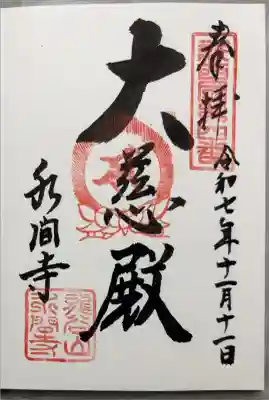 奉拝
令和七年十一月十一日
大慈殿
水間寺